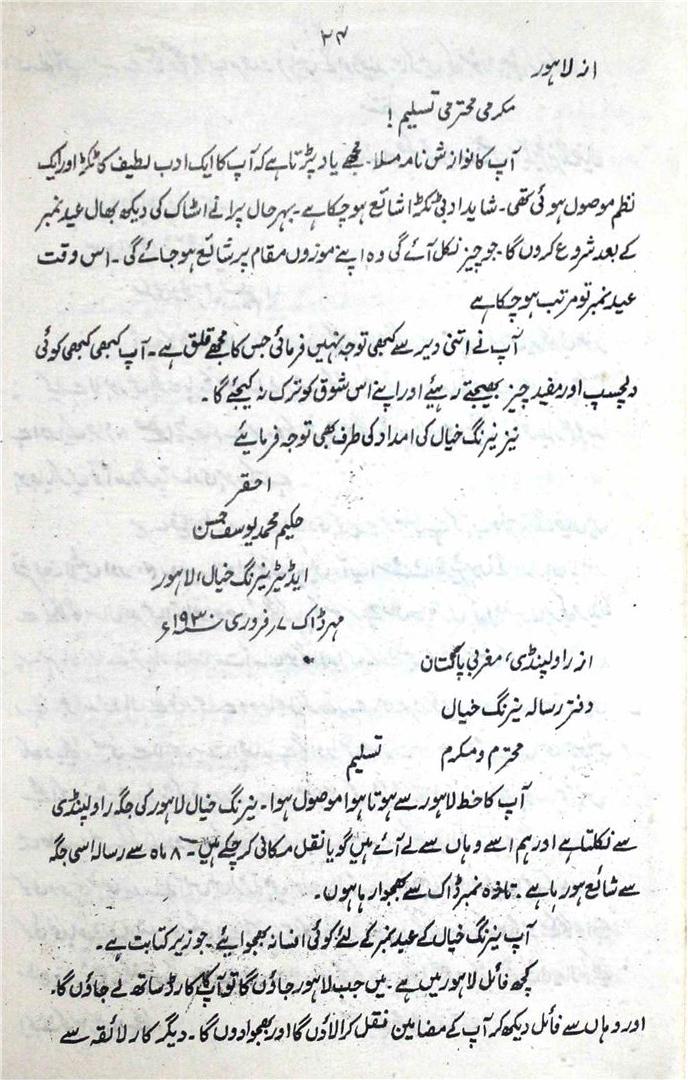 ۲۴
از لاہور
مکرمی محترمی تسلیم !
آپ کا نوازش نامہ ملا۔ مجھے یاد پڑتا ہے کہ آپ کا ایک ادب لطیف کا ٹکڑا اور ایک
نظم موصول ہوئی تھی۔ شاید ادبی ٹکڑا شائع ہو چکا ہے۔ بہر حال پرانے اسٹاک کی دیکھ بھال عید نمبر
کے بعد شروع کروں گا۔ جو چیز نکل آئے گی وہ اپنے موزوں مقام پر شائع ہو جائے گی۔ اس وقت
عید نمبر تو مرتب ہو چکا ہے
آپ نے اتنی دیر سے کبھی توجہ نہیں فرمائی جس کا مجھے قلق ہے۔ آپ کبھی کبھی کوئی
دلچسپ اور مفید چیز بھیجتے رہیئے اور اپنے اس شوق کو ترک نہ کیجئے گا۔
نیز نیرنگ خیال کی امداد کی طرف بھی توجہ فرمایئے
احقر
حکیم محمد یوسف حسن
ایڈیٹر نیرنگ خیال، لاہور
مہر ڈاک ۷ر فروری ۱۹۳۰ء
از راولپنڈی، مغربی پاکستان
دفتر رسالہ نیرنگ خیال
محترم و مکرم تسلیم
آپ کا خط لاہور سے ہوتا ہوا موصول ہوا۔ نیرنگ خیال لاہور کی جگہ راولپنڈی
سے نکلتا ہے اور ہم اسے وہاں سے لے آئے ہیں گویا نقل مکانی کر چکے ہیں۔ ۸ ماہ سے رسالہ اسی جگہ
سے شائع ہو رہا ہے۔ تازہ نمبر ڈاک سے بھجوا رہا ہوں۔
آپ نیرنگ خیال کے عید نمبر کے لئے کوئی افسانہ بھجوایئے۔ جو زیر کتابت ہے۔
کچھ فائل لاہور میں ہے۔ میں جب لاہور جاؤں گا تو آپ کا کارڈ ساتھ لے جاؤں گا۔
اور وہاں سے فائل دیکھ کر آپ کے مضامین نقل کرا لاؤں گا اور بھجوا دوں گا۔ دیگر کار لائقہ سے